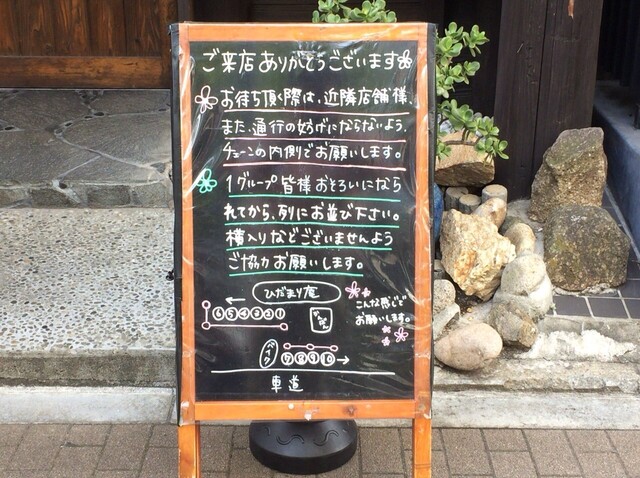 ご来店ありがとうございます
お待ち頂く際は、近隣店舗様、
また、通行の妨げにならないよう、
チェーンの内側でお願いします。
1グループ皆様おそろいになら
れてから、列にお並び下さい。
横入りなどございませんよう
ご協力お願いします。
ひだまり庵
こんな感じで
お願いします。
←
⑥⑤④③②①
かんばん
バイク
⑦⑧⑨⑩→
車道